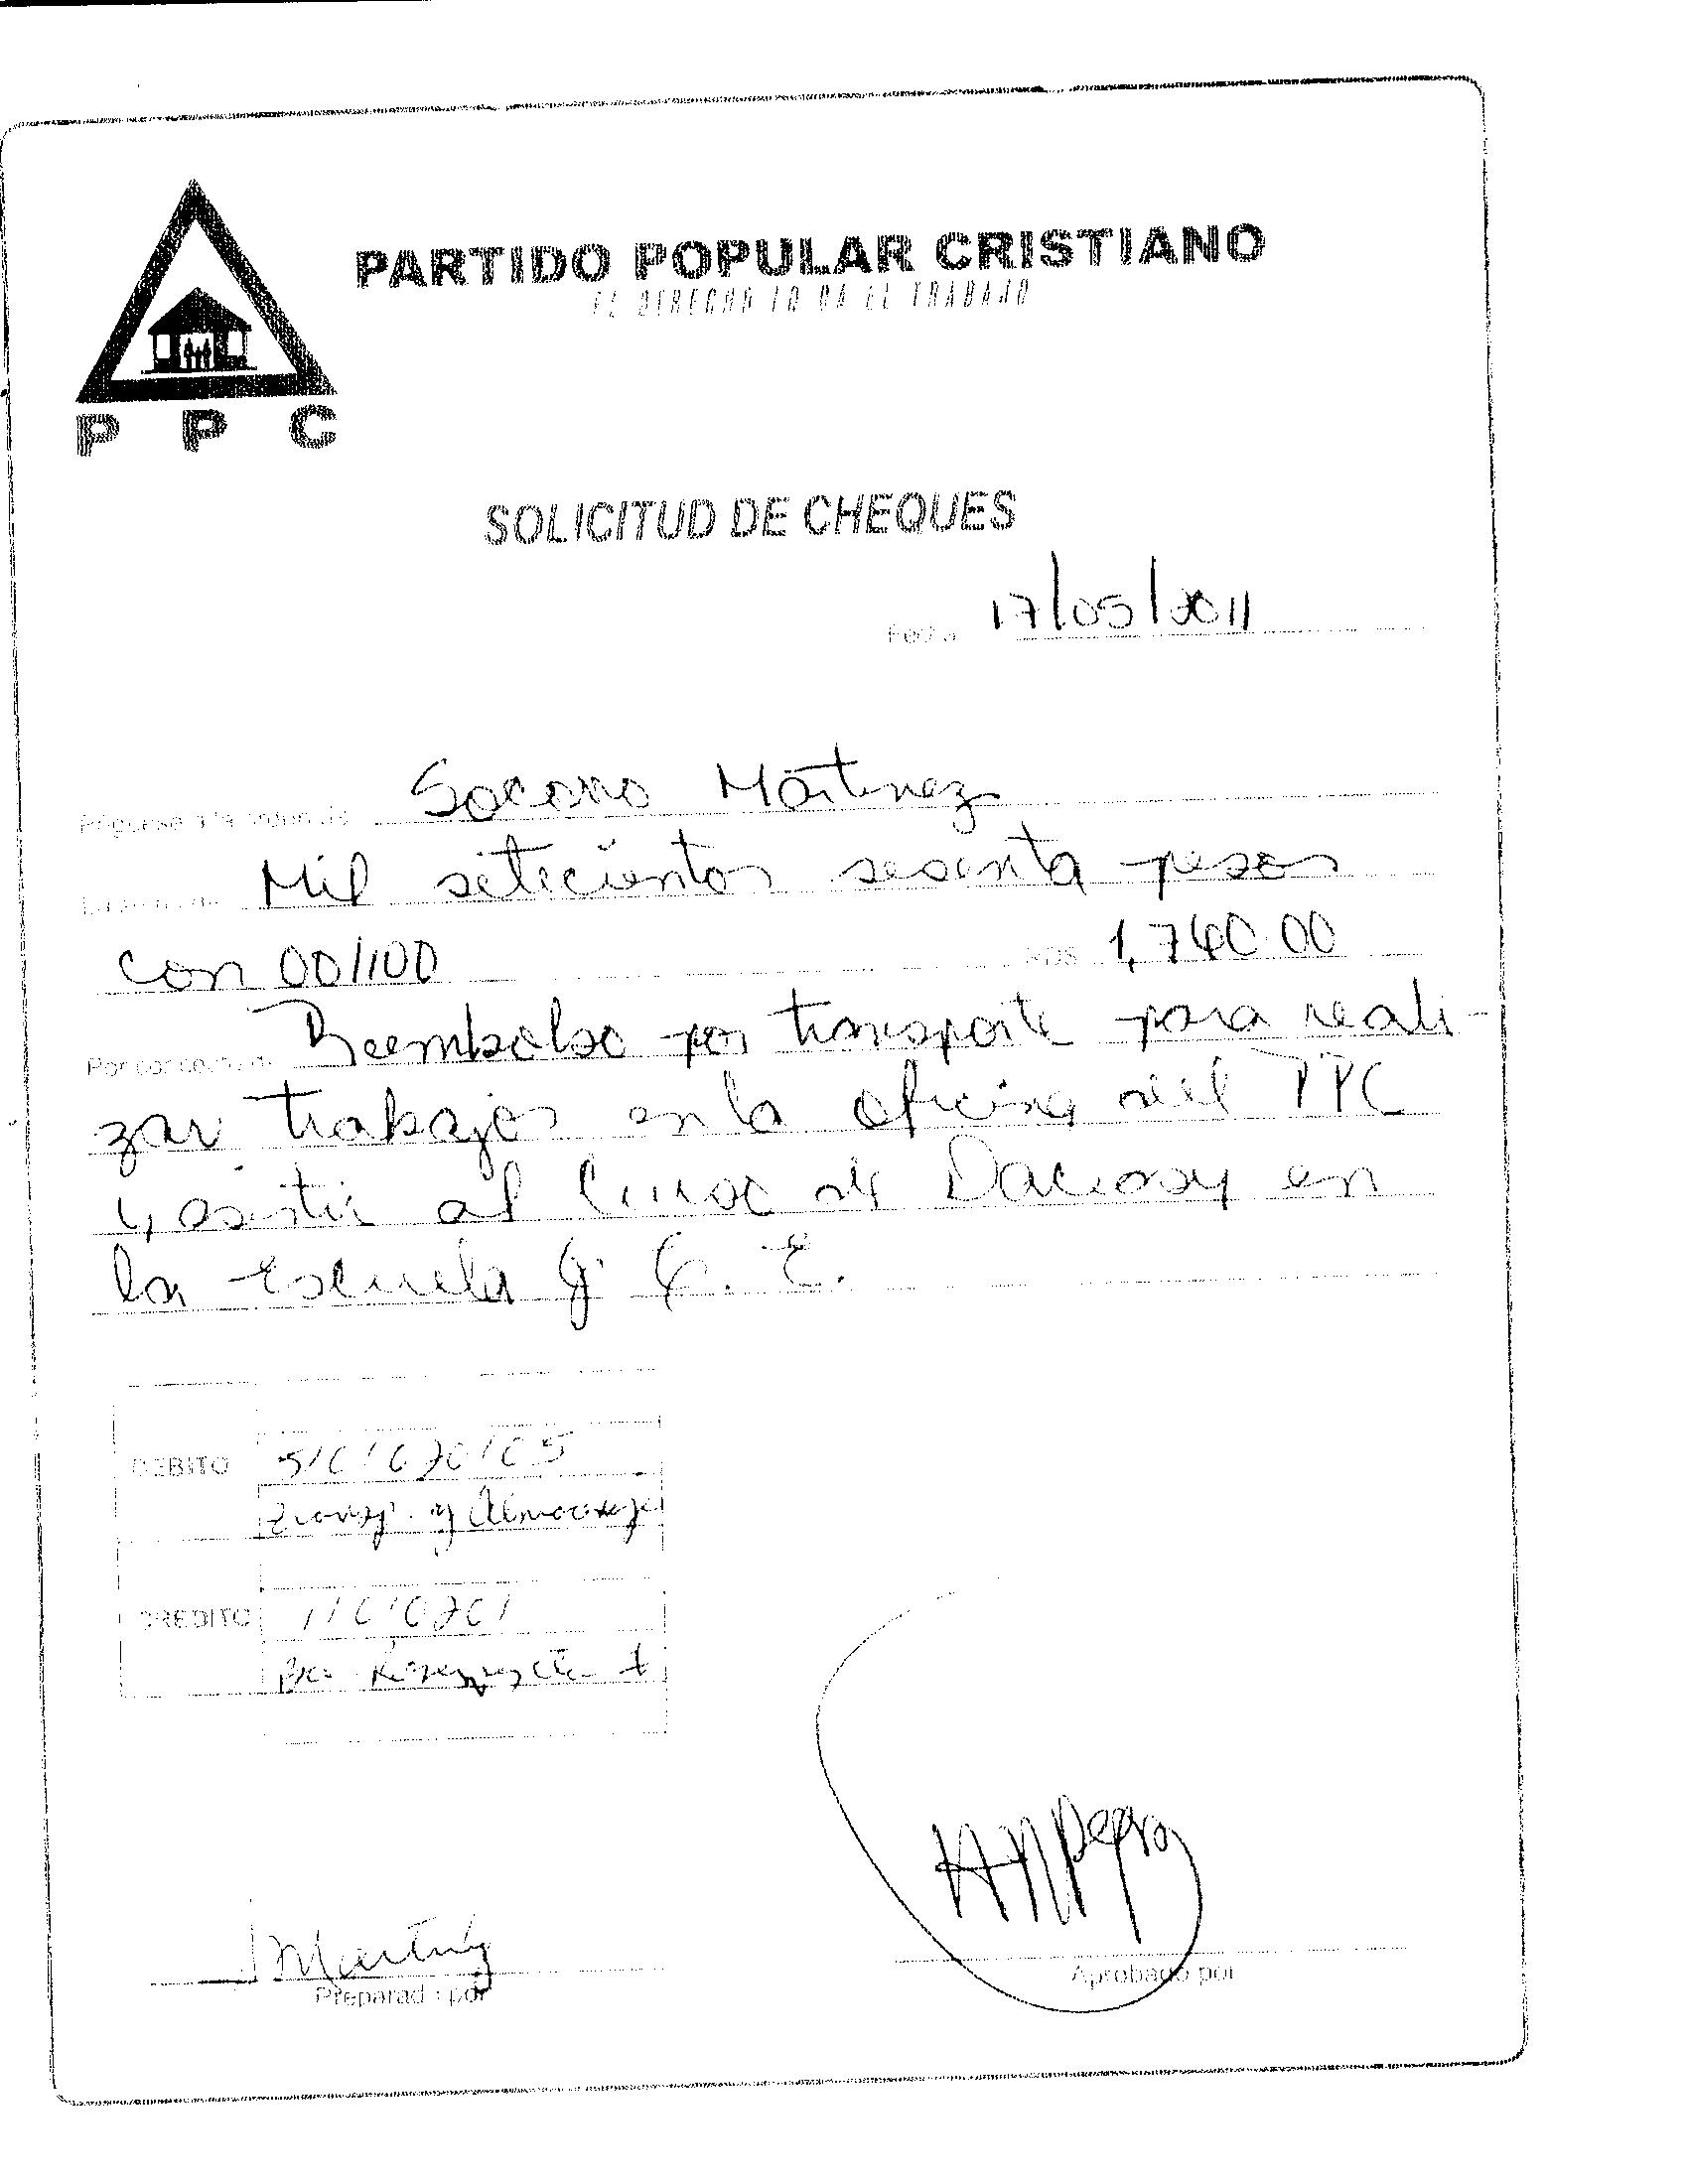 PARTIDO POPULAR CRISTIANO
EL DERECHO LO DA EL TRABAJO
P P C
SOLICITUD DE CHEQUES
Fecha 17/05/2011
Páguese a la orden de Socorro Martinez
Mil setecientos sesenta pesos
con 00/100 RD$ 1,760.00
Por concepto de Reembolso por transporte para reali-
zar trabajos en la oficina del PPC
y asistir al de en
la Escuela J. C. E.
DEBITO
Transp. y
CREDITO
Bco.
Martinez
Preparado por
Aprobado por